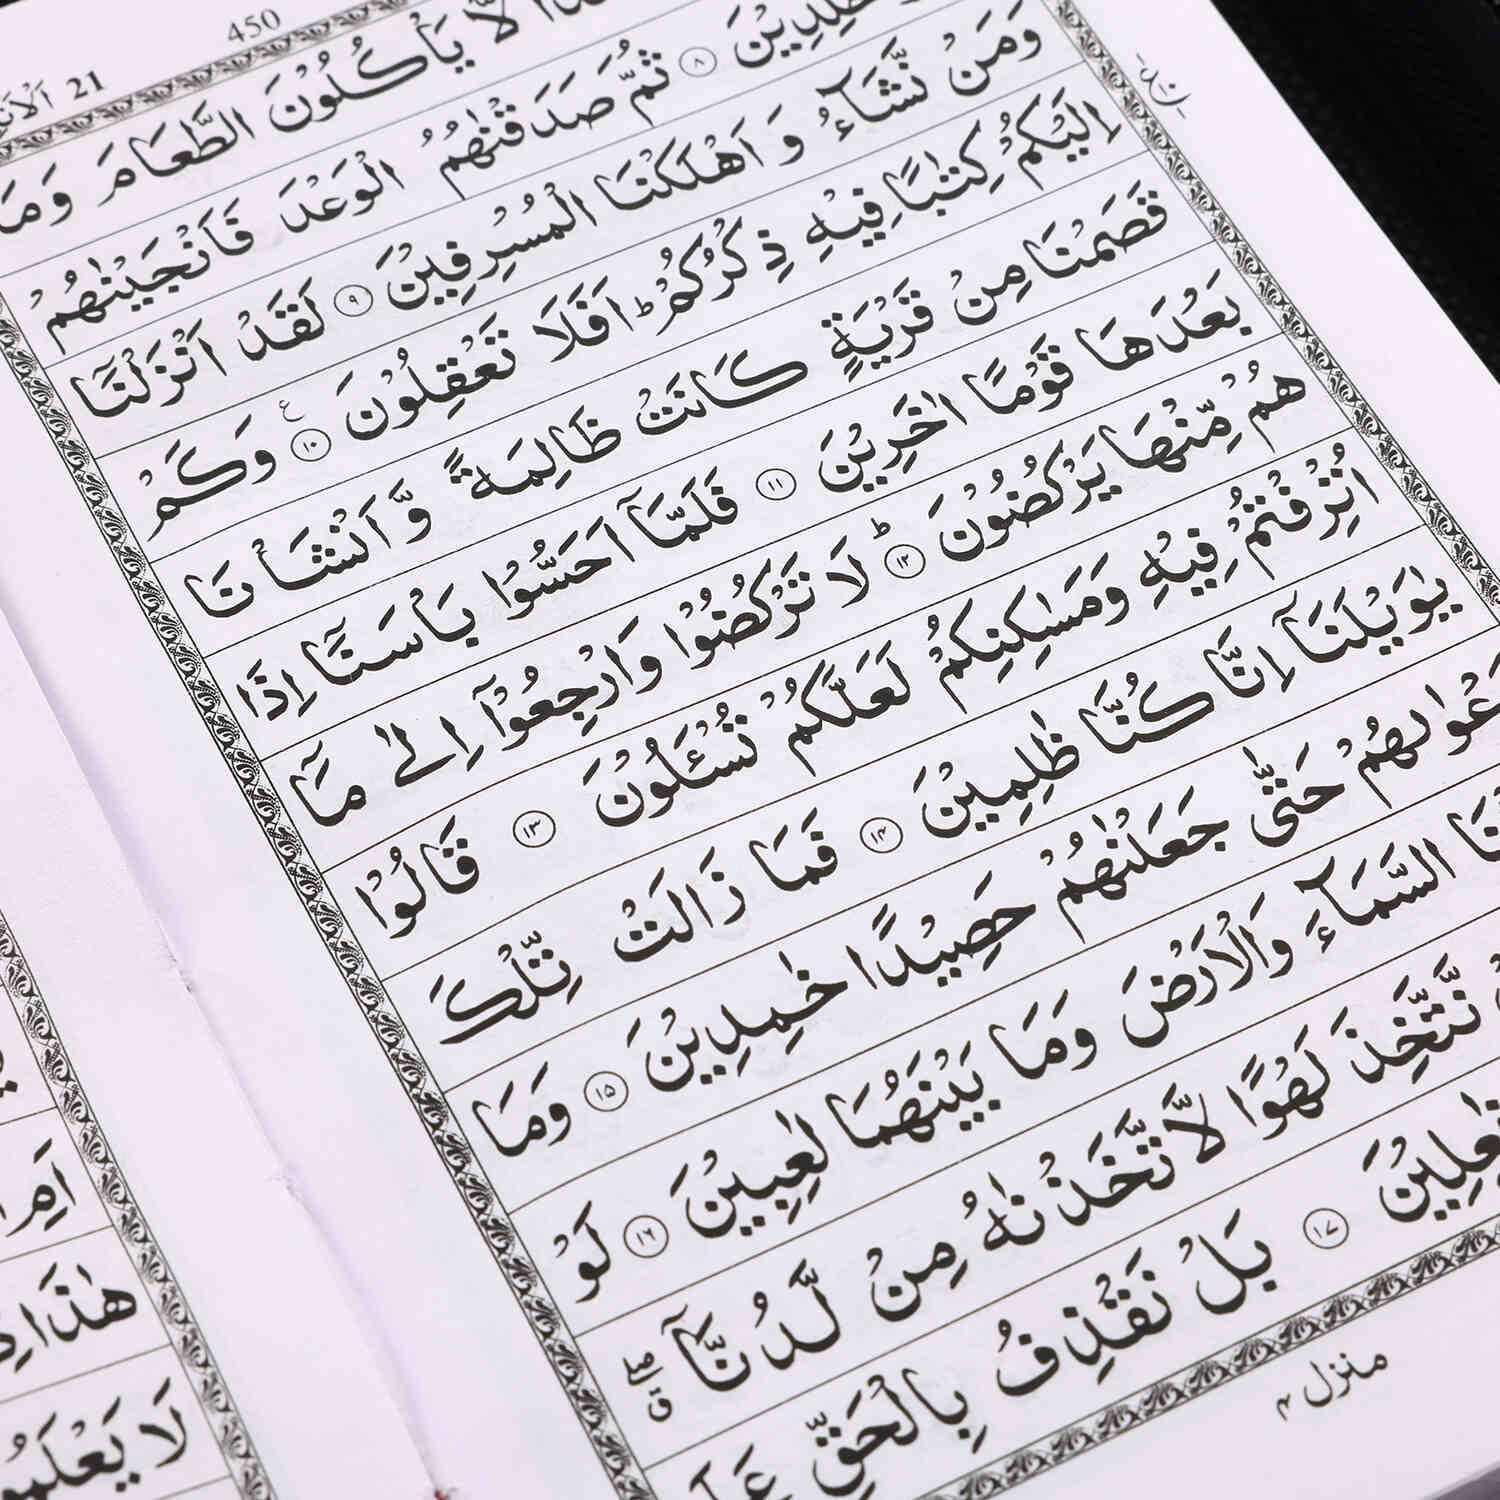 450
21 الان
لَّا يَاْكُلُوْنَ الطَّعَامَ وَمَا
خٰلِدِيْنَ ۸ ثُمَّ صَدَقْنٰهُمُ الْوَعْدَ فَاَنْجَيْنٰهُمْ
وَمَنْ نَّشَآءُ وَ اَهْلَكْنَا الْمُسْرِفِيْنَ ۹ لَقَدْ اَنْزَلْنَآ
اِلَيْكُمْ كِتٰبًا فِيْهِ ذِكْرُكُمْ ؕ اَفَلَا تَعْقِلُوْنَ ۱۰ وَكَمْ
قَصَمْنَا مِنْ قَرْيَةٍ كَانَتْ ظَالِمَةً وَّ اَنْشَاْنَا
بَعْدَهَا قَوْمًا اٰخَرِيْنَ ۱۱ فَلَمَّآ اَحَسُّوْا بَاْسَنَآ اِذَا
هُمْ مِّنْهَا يَرْكُضُوْنَ ؕ ۱۲ لَا تَرْكُضُوْا وَارْجِعُوْٓا اِلٰى مَآ
اُتْرِفْتُمْ فِيْهِ وَمَسٰكِنِكُمْ لَعَلَّكُمْ تُسْـَٔلُوْنَ ۱۳ قَالُوْا
يٰوَيْلَنَآ اِنَّا كُنَّا ظٰلِمِيْنَ ۱۴ فَمَا زَالَتْ تِّلْكَ
دَعْوٰىهُمْ حَتّٰى جَعَلْنٰهُمْ حَصِيْدًا خٰمِدِيْنَ ۱۵ وَمَا
خَلَقْنَا السَّمَآءَ وَالْاَرْضَ وَمَا بَيْنَهُمَا لٰعِبِيْنَ ۱۶ لَوْ
نَّتَّخِذَ لَهْوًا لَّاتَّخَذْنٰهُ مِنْ لَّدُنَّآ
فٰعِلِيْنَ ۱۷ بَلْ نَقْذِفُ بِالْحَقِّ
منزل ۴
هٰذَا
لَا يَعْلَمُوْ